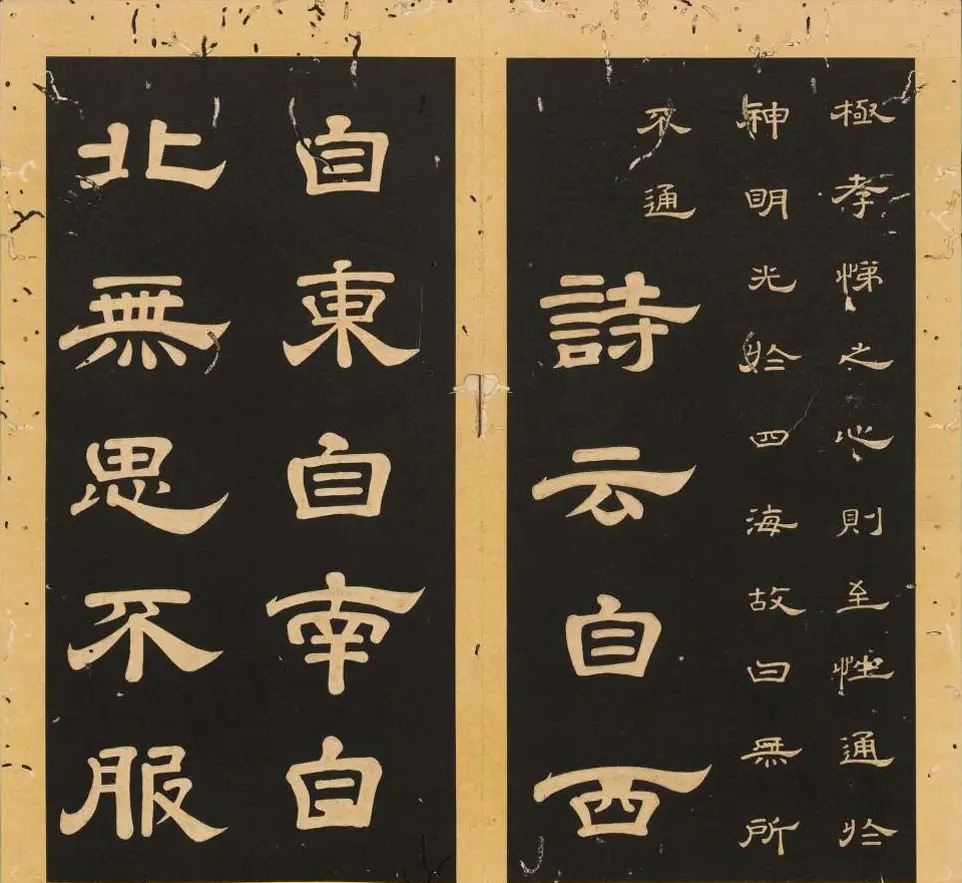 極孝悌之心則至性通於
神明光於四海故曰無所
不通
詩云自西
自東自南自
北無思不服